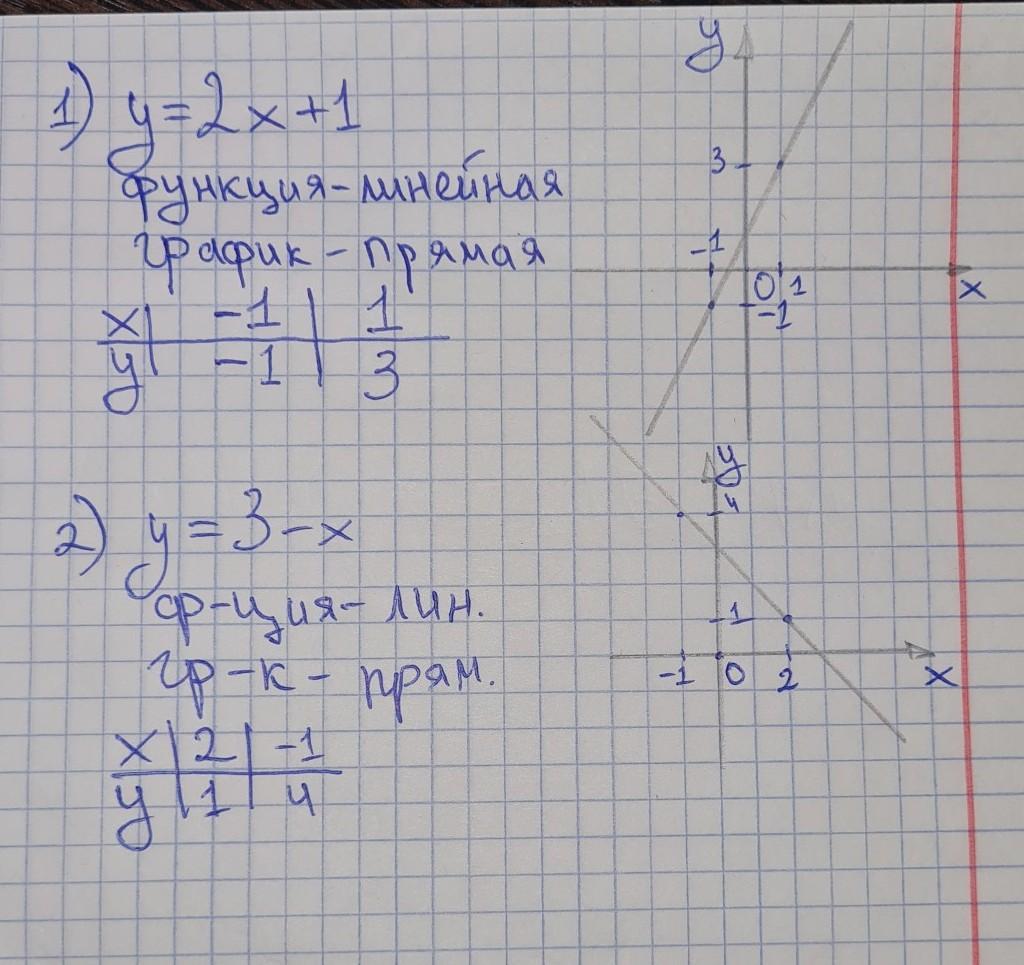 1) y=2x+1
функция-линейная
график-прямая
x | -1 | 1
y | -1 | 3
y
3
-1
0 1
x
-1
2) y=3-x
ф-ция-лин.
гр-к-прям.
x | 2 | -1
y | 1 | 4
y
4
1
-1 0 2 x